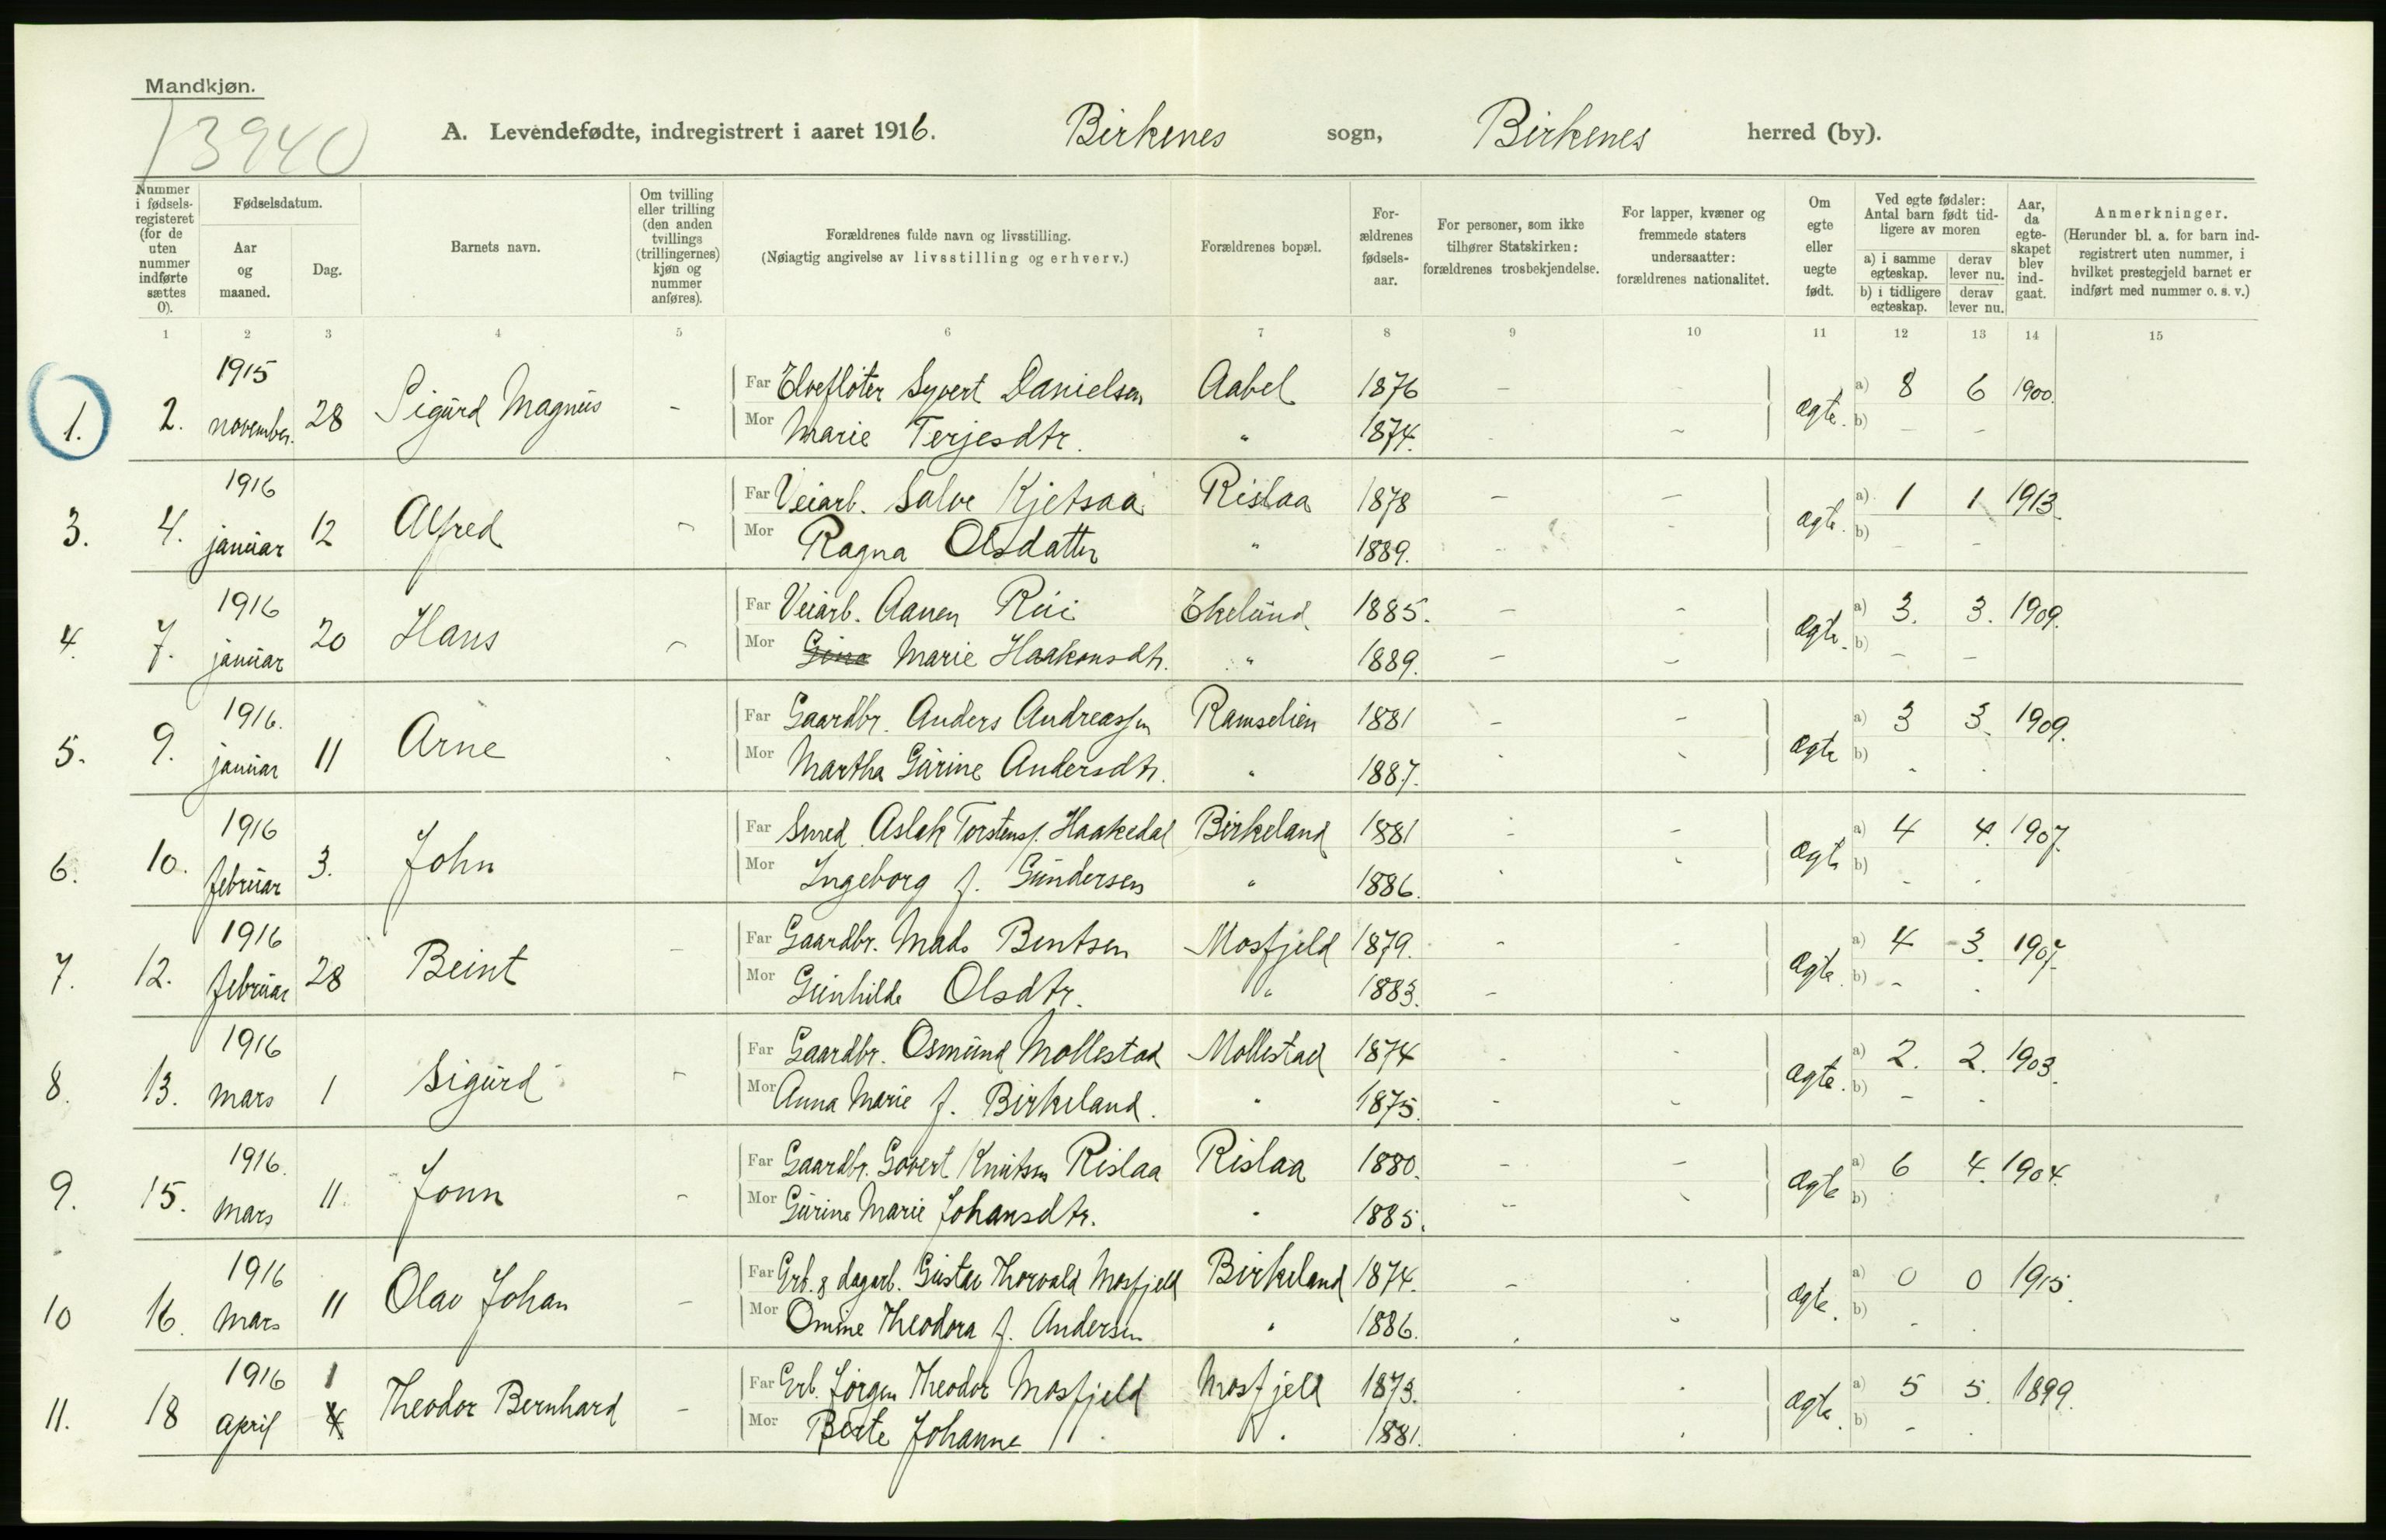 Mandkjøn.
13940
A. Levendefødte, indregistrert i aaret 1916. Birkenes sogn, Birkenes herred (by).
Nummer i fødsels-registeret (for de uten nummer indførte sættes 0).
Fødselsdatum.
Aar og maaned.
Dag.
Barnets navn.
Om tvilling eller trilling (den anden tvillings (trillingernes) kjøn og nummer anføres).
Forældrenes fulde navn og livsstilling.
(Nøiagtig angivelse av livsstilling og erhverv.)
Forældrenes bopæl.
For-ældrenes fødsels-aar.
For personer, som ikke tilhører Statskirken: forældrenes trosbekjendelse.
For lapper, kvæner og fremmede staters undersaatter: forældrenes nationalitet.
Om egte eller uegte født.
Ved egte fødsler: Antal barn født tid-ligere av moren
a) i samme egteskap.
derav lever nu.
b) i tidligere egteskap.
derav lever nu.
Aar, da egte-skapet blev ind-gaat.
Anmerkninger.
(Herunder bl. a. for barn ind-registrert uten nummer, i hvilket prestegjeld barnet er indført med nummer o. s. v.)
1 2 3 4 5 6 7 8 9 10 11 12 13 14 15
1. 2. 1915 november. 28 Sigurd Magnus - Far Elvefløter Syvert Danielsen Aabel 1876 - - ægte. a) 8 6 1900.
Mor Marie Terjesdtr. " 1874. - - b) - -
3. 4. 1916 januar 12 Alfred - Far Veiarb. Salve Kjetsaa Rislaa 1878 - - ægte. a) 1 1 1913.
Mor Ragna Olsdatter " 1889. - - b) - -
4. 7. 1916 januar 20 Hans - Far Veiarb. Aanen Rui Ekelund 1885. - - ægte. a) 3. 3. 1909.
Mor Gina Marie Haakonsdtr. " 1889. - - b) - -
5. 9. 1916. januar 11 Arne - Far Gaardbr. Anders Andreassen Ramselien 1881 - - ægte a) 3 3. 1909.
Mor Martha Gurine Andersdtr. " 1887. - - b) - -
6. 10. 1916 februar 3. John Far Smed Aslak Torstens. Haakedal Birkeland 1881 - - ægte a) 4 4. 1907.
Mor Ingeborg f. Gundersen " 1886. - - b) - -
7. 12. 1916 februar 28 Beint - Far Gaardbr. Mads Bentsen Mosfjeld 1879. - - ægte. a) 4 3. 1907.
Mor Gunhilde Olsdtr. " 1883. - - b) - -
8. 13. 1916 mars 1 Sigurd - Far Gaardbr. Osmund Mollestad Mollestad 1874 - - ægte. a) 2. 2. 1903.
Mor Anna Marie f. Birkeland. " 1875. - - b) - -
9. 15. 1916. mars 11. Jonn - Far Gaardbr. Govert Knutsen Rislaa Rislaa 1880. - - ægte a) 6 4. 1904.
Mor Gurine Marie Johansdtr. " 1885. - - b)
10 16. 1916 mars 11 Olav Johan - Far Grb. & dagarb. Gustav Thorvald Mosfjeld Birkeland 1874. - - ægte. a) 0 0 1915.
Mor Omine Theodora f. Andersen " 1886. - - b) - -
11. 18 1916 april 1 4 Theodor Bernhard - Far Grb. Jörgen Theodor Mosfjeld Mosfjeld 1873. - - ægte. a) 5 5. 1899.
Mor Berte Johanne " 1881. - - b) - -